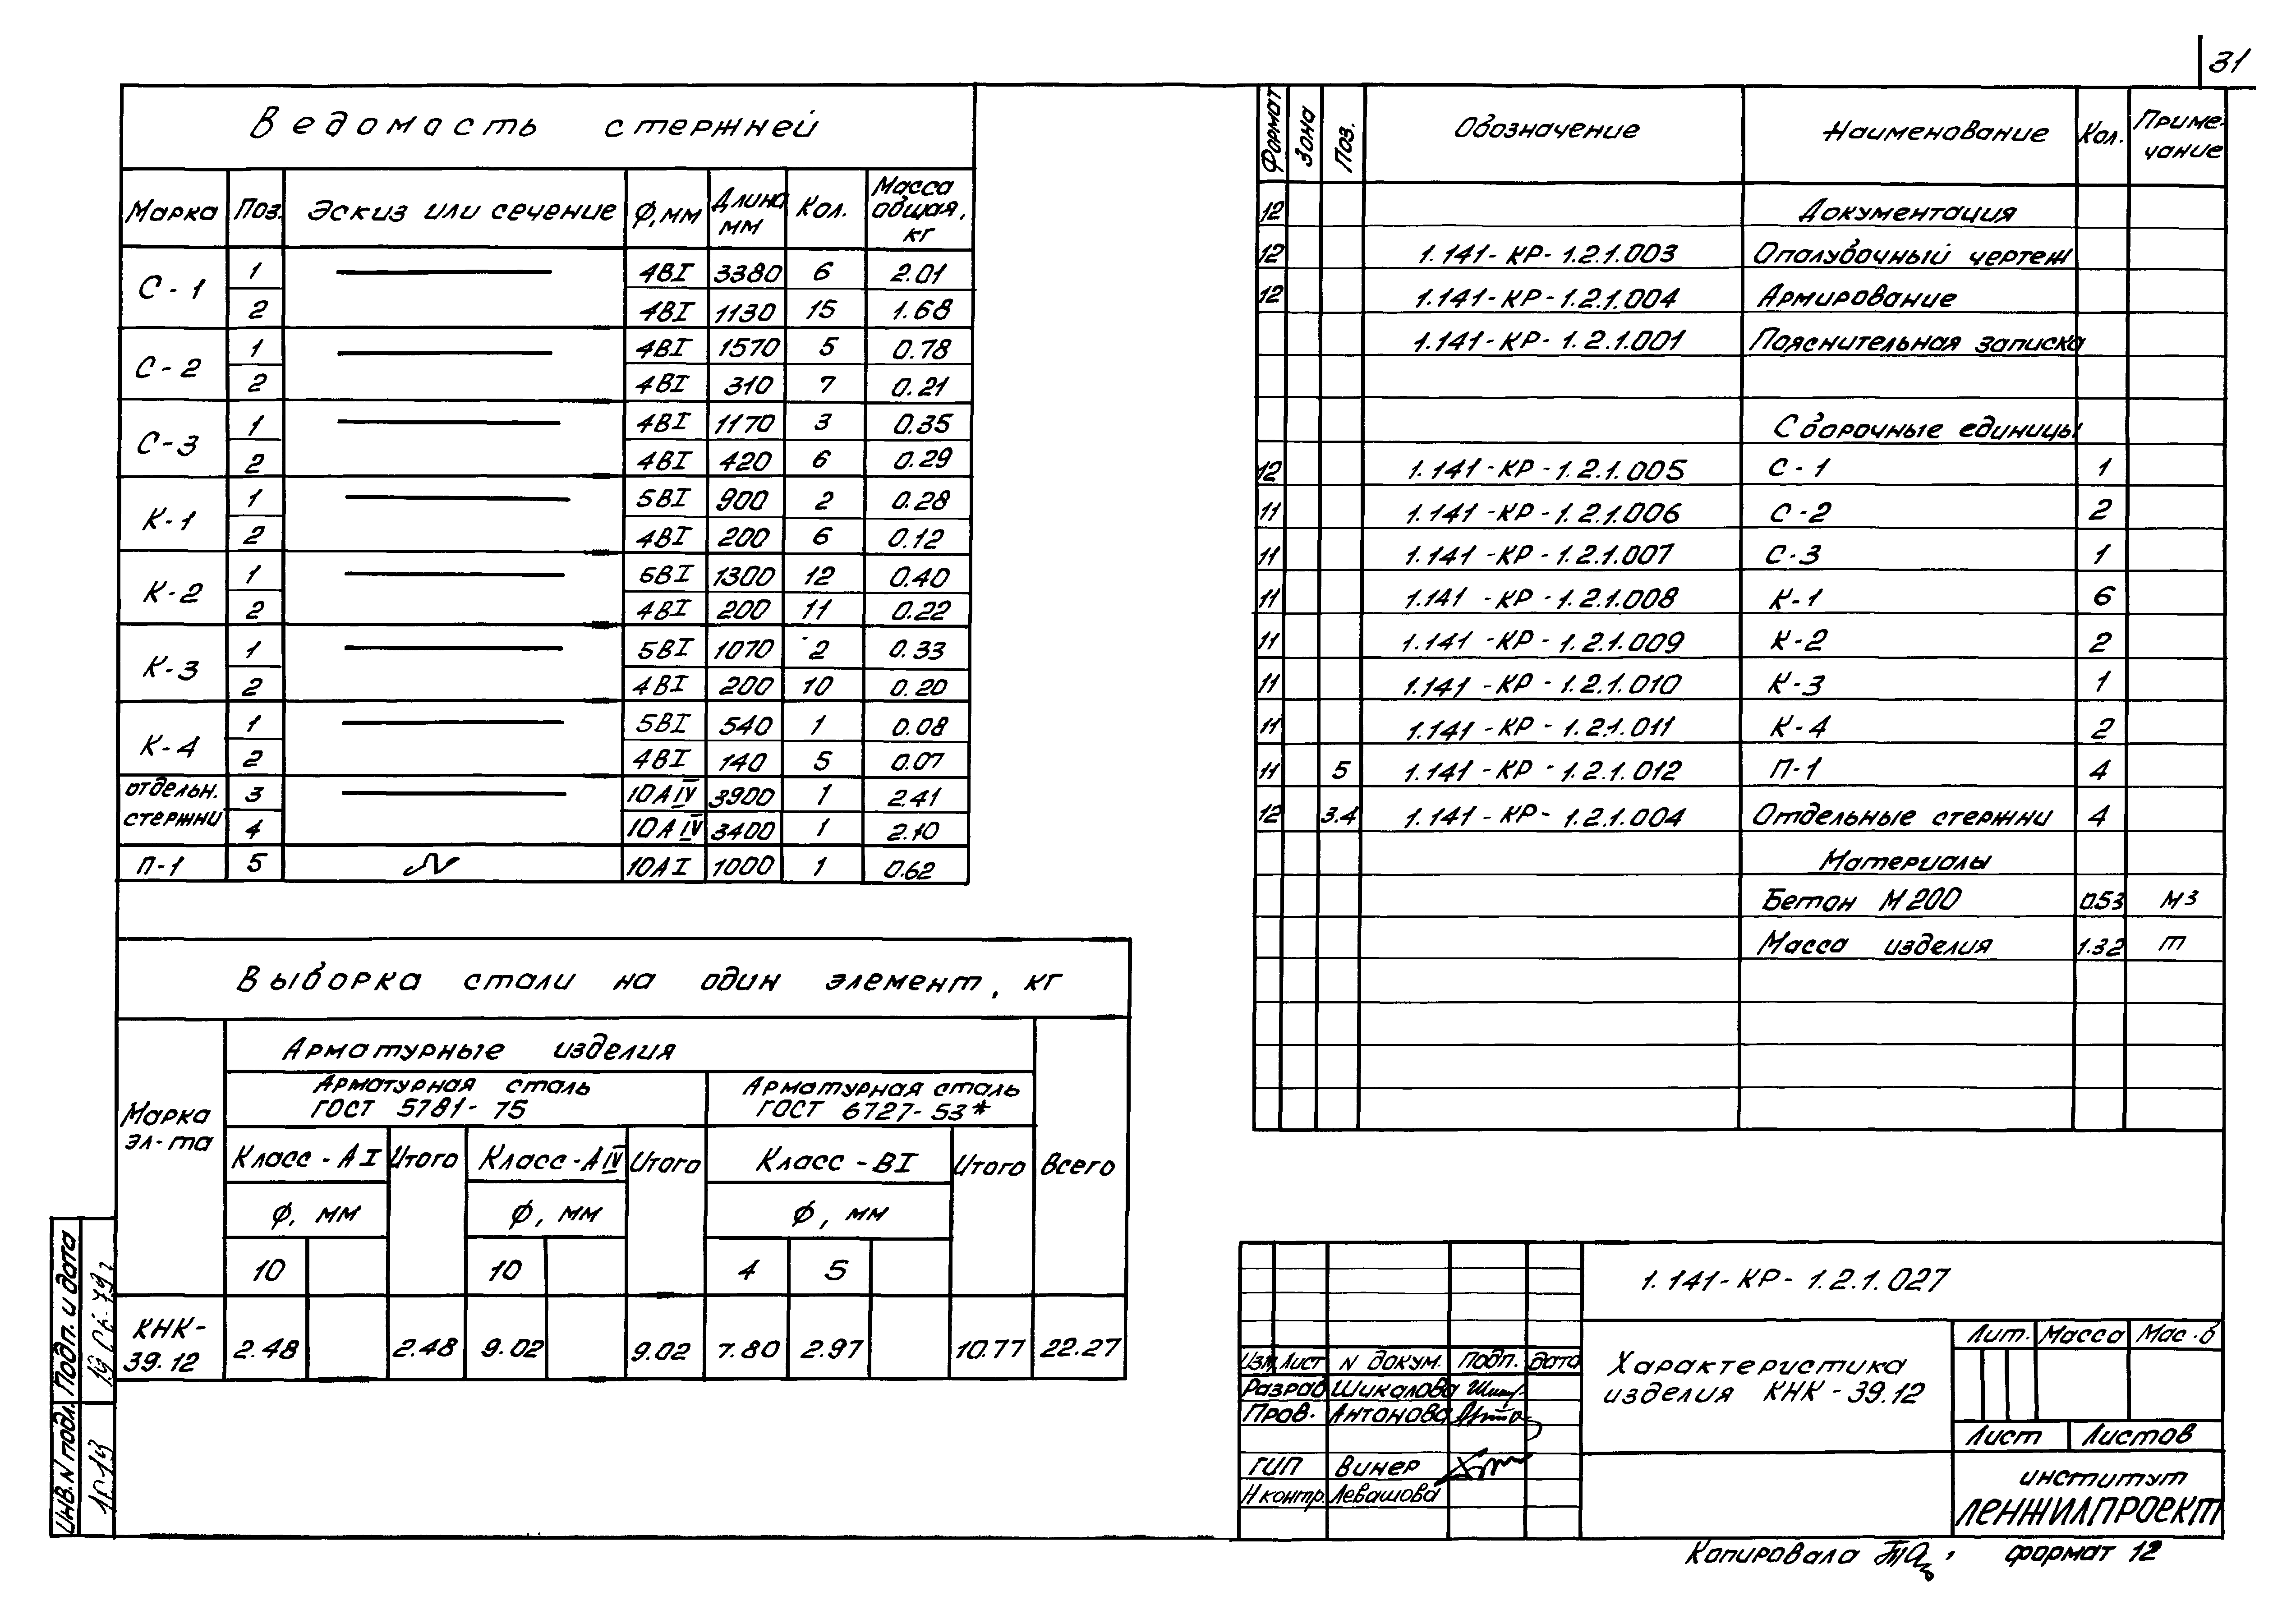 31
Ведомасть стержней
Марка Поз. Эскиз или сечение ф,мм Длина мм Кол. Масса общая, кг
С-1 1 4ВI 3380 6 2.01
2 4ВI 1130 15 1.68
С-2 1 4ВI 1570 5 0.78
2 4ВI 310 7 0.21
С-3 1 4ВI 1170 3 0.35
2 4ВI 420 6 0.29
К-1 1 5ВI 900 2 0.28
2 4ВI 200 6 0.12
К-2 1 5ВI 1300 12 0.40
2 4ВI 200 11 0.22
К-3 1 5ВI 1070 2 0.33
2 4ВI 200 10 0.20
К-4 1 5ВI 540 1 0.08
2 4ВI 140 5 0.07
отдельн. стержни 3 10АIV 3900 1 2.41
4 10АIV 3400 1 2.10
П-1 5 10АI 1000 1 0.62
Выборка стали на один элемент, кг
Марка эл-та
Арматурные изделия
Арматурная сталь ГОСТ 5781-75
Арматурная сталь ГОСТ 6727-53*
Класс-АI Итого Класс-АIV Итого Класс-ВI Итого Всего
ф, мм ф, мм ф, мм
10 10 4 5
КНК-39.12 2.48 2.48 9.02 9.02 7.80 2.97 10.77 22.27
Формат Зона Поз. Обозначение Наименование Кол. Приме-
чание
12 Документация
12 1.141-КР-1.2.1.003 Опалубочный чертеж
12 1.141-КР-1.2.1.004 Армирование
1.141-КР-1.2.1.001 Пояснительная записка
Сборочные единицы
12 1.141-КР-1.2.1.005 С-1 1
11 1.141-КР-1.2.1.006 С-2 2
11 1.141-КР-1.2.1.007 С-3 1
11 1.141-КР-1.2.1.008 К-1 6
11 1.141-КР-1.2.1.009 К-2 2
11 1.141-КР-1.2.1.010 К-3 1
11 1.141-КР-1.2.1.011 К-4 2
11 5 1.141-КР-1.2.1.012 П-1 4
12 3.4 1.141-КР-1.2.1.004 Отдельные стержни 4
Материалы
Бетон М200 0.53 м3
Масса изделия 1.32 т
1.141-КР-1.2.1.027
Характеристика
изделия КНК-39.12
Лит. Масса Мас-б
Лист Листов
институт
ЛЕНЖИЛПРОЕКТ
Изм Лист N докум. Подп. Дата
Разраб Шикалова
Пров. Антонова
ГИП Винер
Н контр. Левашова
Копировала формат 12
Инв. N подл. Подп. и дата